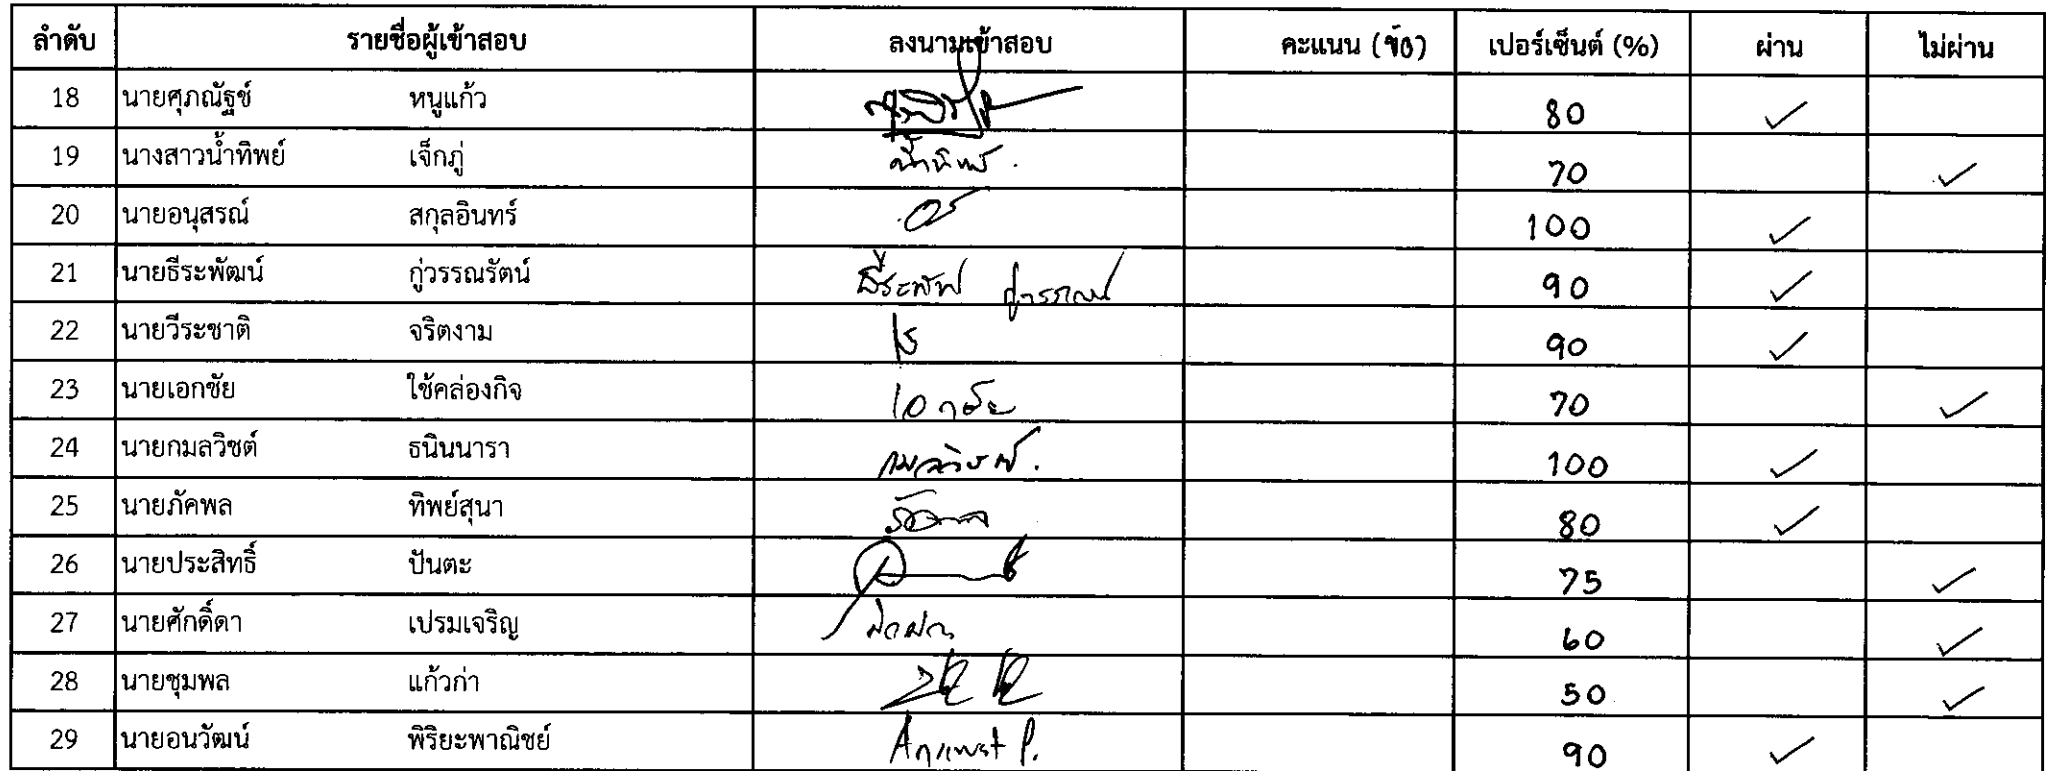 ลำดับ รายชื่อผู้เข้าสอบ ลงนามเข้าสอบ คะแนน (ข้อ) เปอร์เซ็นต์ (%) ผ่าน ไม่ผ่าน
18 นายศุภณัฐช์ หนูแก้ว 80 ✓
19 นางสาวน้ำทิพย์ เจ็กภู่ น้ำทิพย์ 70 ✓
20 นายอนุสรณ์ สกุลอินทร์ 100 ✓
21 นายธีระพัฒน์ กู่วรรณรัตน์ 90 ✓
22 นายวีระชาติ จริตงาม 90 ✓
23 นายเอกชัย ใช้คล่องกิจ เอกชัย 70 ✓
24 นายกมลวิชต์ ธนินนารา 100 ✓
25 นายภัคพล ทิพย์สุนา 80 ✓
26 นายประสิทธิ์ ปันตะ 75 ✓
27 นายศักดิ์ดา เปรมเจริญ 60 ✓
28 นายชุมพล แก้วก่า 50 ✓
29 นายอนวัฒน์ พิริยะพาณิชย์ 90 ✓